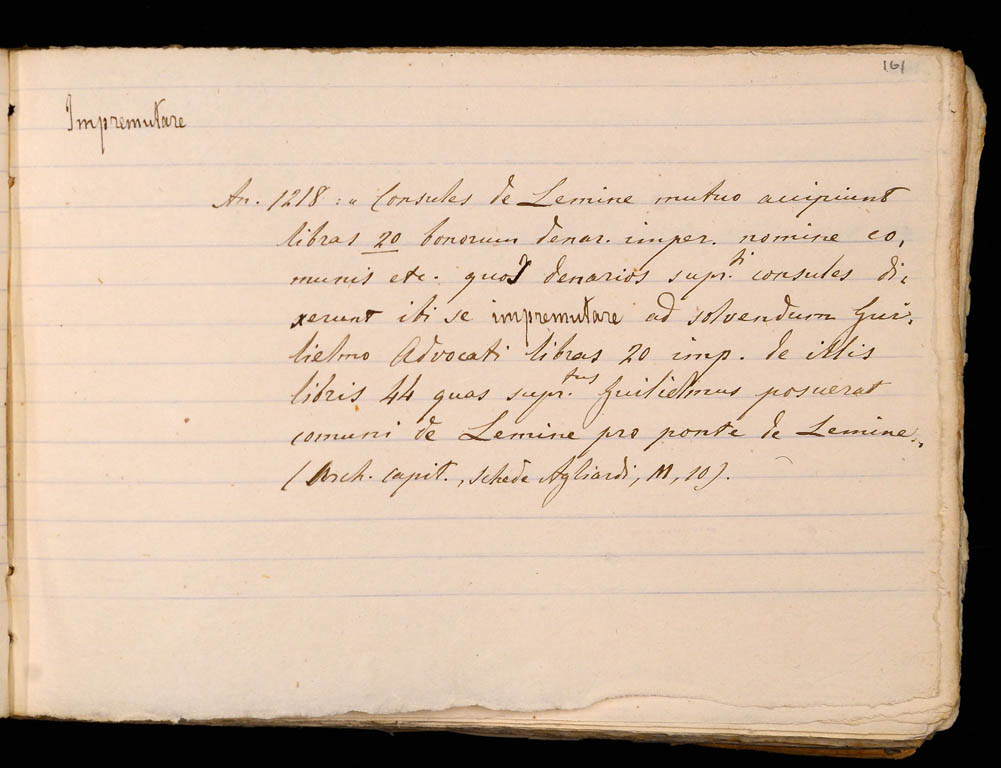 161
Impremutare
An. 1218: « Consules de Lemine mutuo accipiunt
libras 20 bonorum denar. imper. nomine co,
munis etc. quos denarios supr.ti consules di,
xerunt ibi se impremutare ad solvendum Gui,
lielmo Advocati libras 20 imp. de illis
libris 44 quas supr.tus Guilielmus posuerat
comuni de Lemine pro ponte de Lemine »
(Arch. capit., schede Agliardi, M, 10).